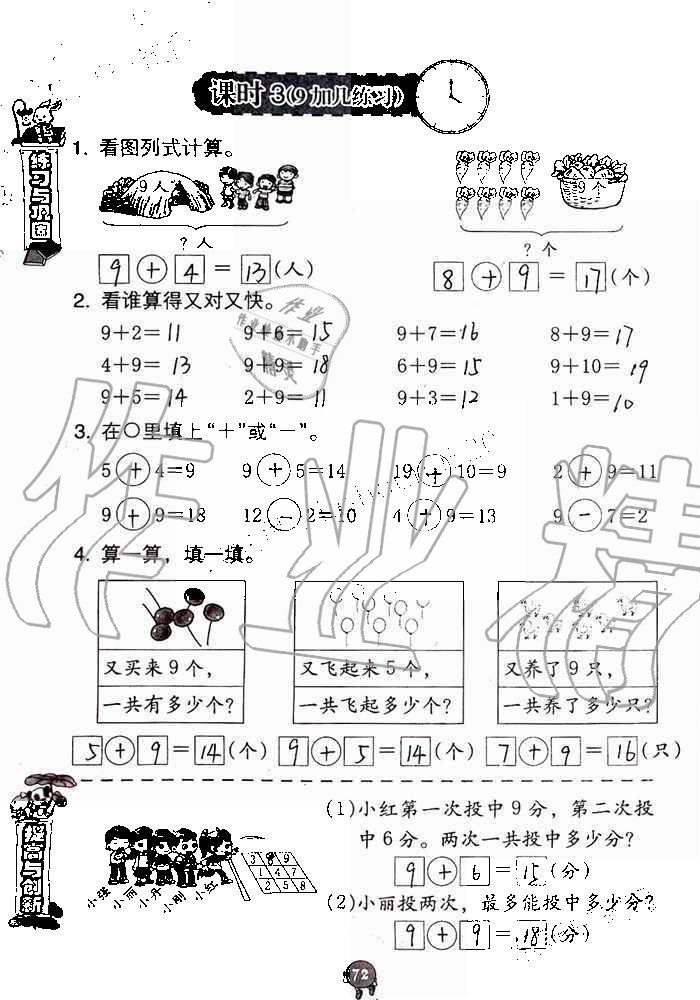 课时 3(9加几练习)
练习与巩固
1. 看图列式计算。
9人 9个
?人 ?个
9+4=13(人) 8+9=17(个)
2. 看谁算得又对又快。
9+2=11 9+6=15 9+7=16 8+9=17
4+9=13 9+9=18 6+9=15 9+10=19
9+5=14 2+9=11 9+3=12 1+9=10
3. 在○里填上“+”或“-”。
5+4=9 9+5=14 19+10=9 2+9=11
9+9=18 12-2=10 4+9=13 9-7=2
4. 算一算，填一填。
又买来9个， 又飞起来5个， 又养了9只，
一共有多少个? 一共飞起多少个? 一共养了多少只?
5+9=14(个) 9+5=14(个) 7+9=16(只)
提高与创新
小张 小丽 小丹 小刚 小红
3 8 9
1 4 7
2 5 8
(1)小红第一次投中9分，第二次投
中6分。两次一共投中多少分?
9+6=15(分)
(2)小丽投两次，最多能投中多少分?
9+9=18(分)
72
作业精